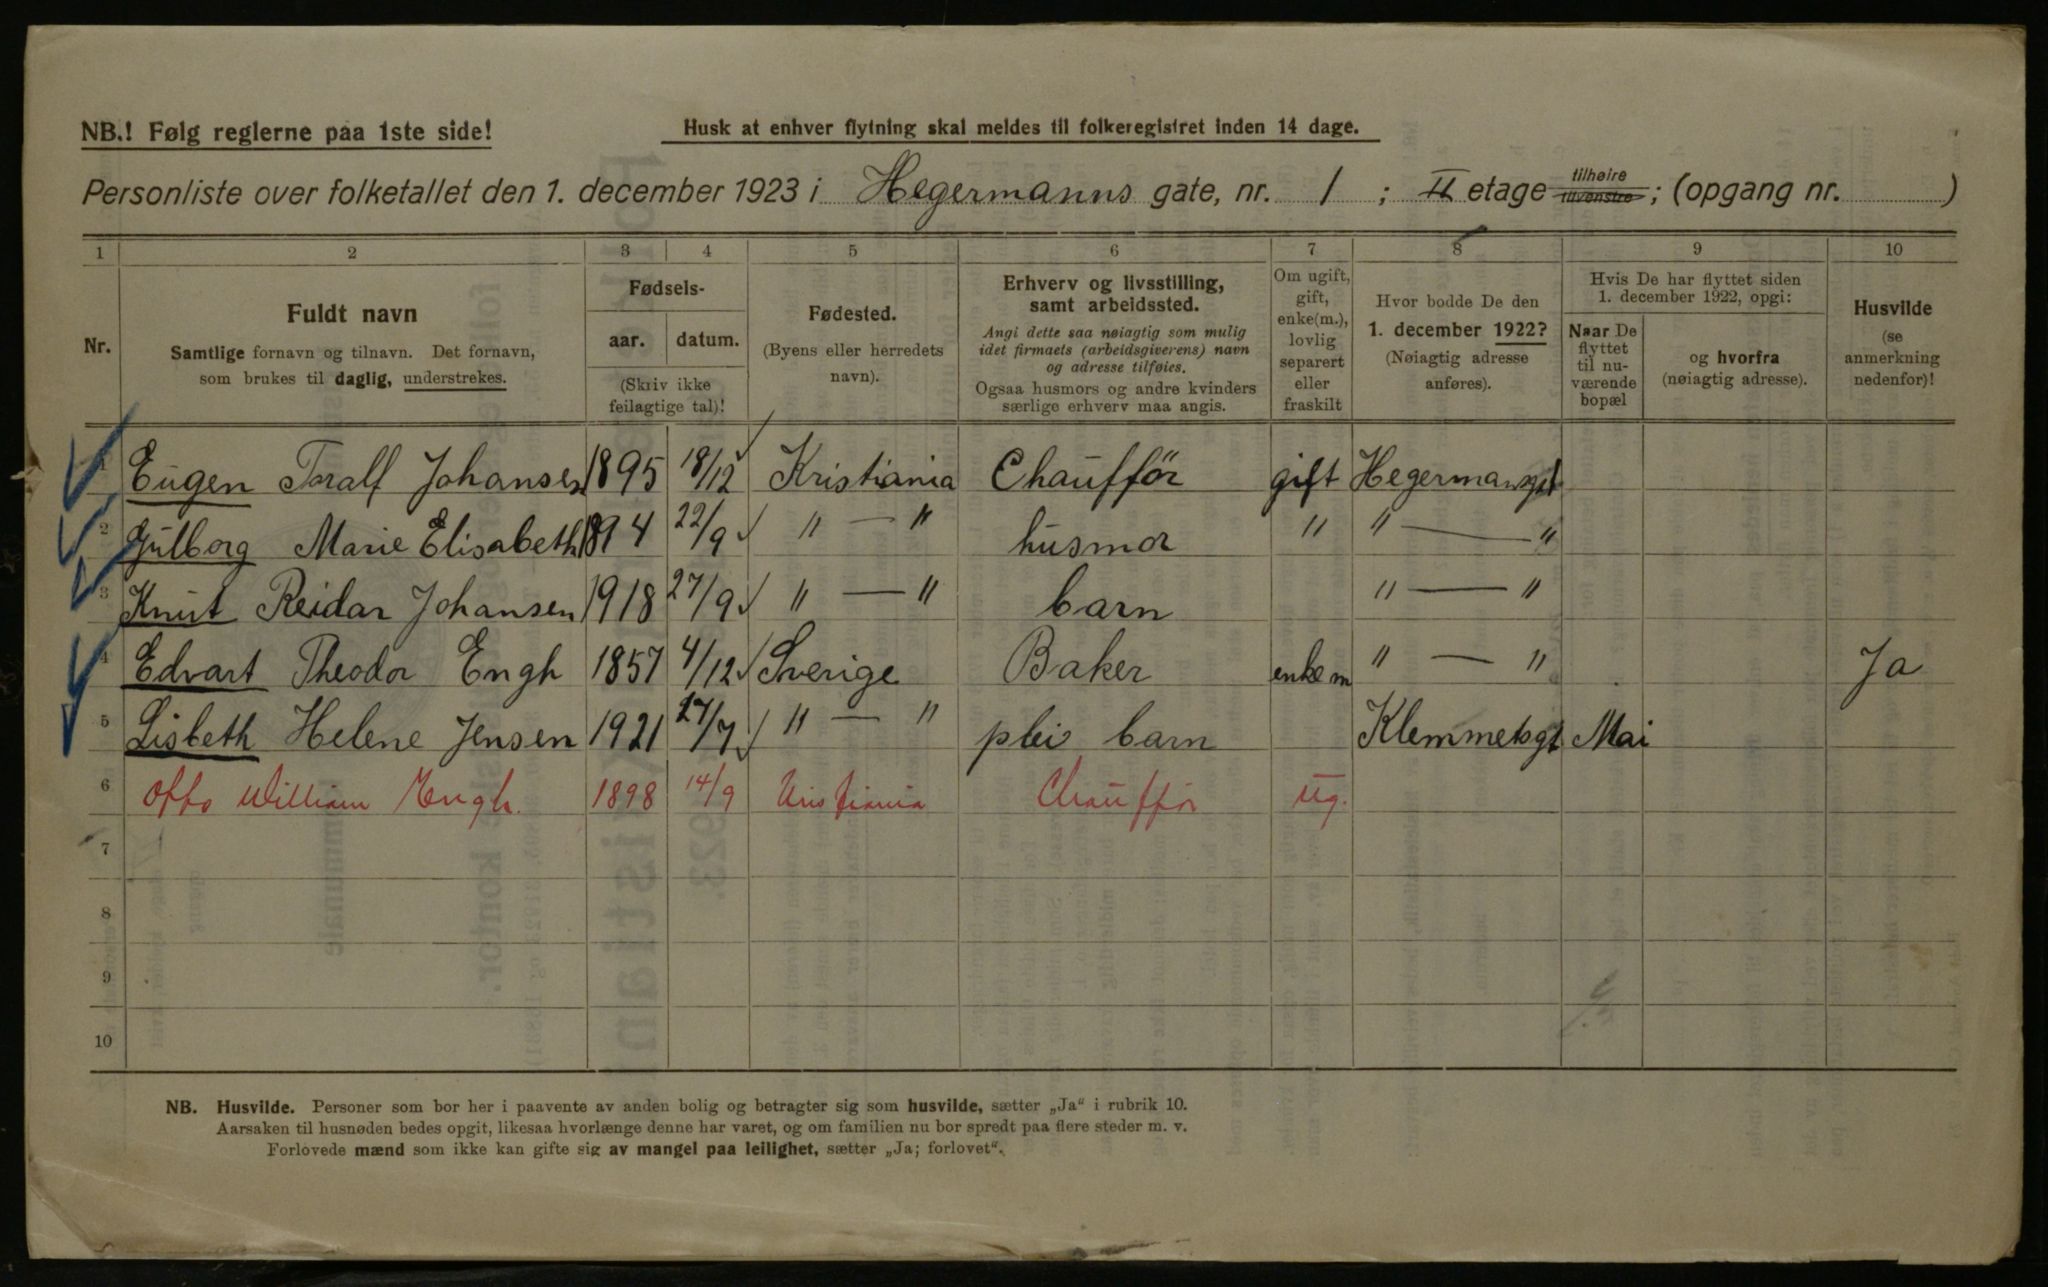 NB.! Følg reglerne paa 1ste side!
Husk at enhver flytning skal meldes til folkeregistret inden 14 dage.
Personliste over folketallet den 1. december 1923 i Hegermanns gate, nr. 1 ; II etage tilhøire tilvenstre ; (opgang nr. )
1 2 3 4 5 6 7 8 9 10
Nr.
Fuldt navn
Samtlige fornavn og tilnavn. Det fornavn,
som brukes til daglig, understrekes.
Fødsels-
aar. datum.
(Skriv ikke
feilagtige tal)!
Fødested.
(Byens eller herredets
navn).
Erhverv og livsstilling,
samt arbeidssted.
Angi dette saa nøiagtig som mulig
idet firmaets (arbeidsgiverens) navn
og adresse tilføies.
Ogsaa husmors og andre kvinders
særlige erhverv maa angis.
Om ugift,
gift,
enke(m.),
lovlig
separert
eller
fraskilt
Hvor bodde De den
1. december 1922?
(Nøiagtig adresse
anføres).
Hvis De har flyttet siden
1. december 1922, opgi:
Naar De
flyttet
til nu-
værende
bopæl
og hvorfra
(nøiagtig adresse).
Husvilde
(se
anmerkning
nedenfor)!
1 Eugen Toralf Johansen 1895 18/12 Kristiania Chaufför gift Hegermansgt
2 Gulborg Marie Elisabeth 1894 22/9 " — " husmor " " — "
3 Knut Reidar Johansen 1918 27/9 " — " barn " — "
4 Edvart Theodor Engh 1857 4/12 Sverige Baker enkem " — " Ja
5 Lisbeth Helene Jensen 1921 27/7 " — " plei barn Klemmetsgt Mai
6 Otto William Engh. 1898 14/9 Kristiania Chaufför ug.
7
8
9
10
NB. Husvilde. Personer som bor her i paavente av anden bolig og betragter sig som husvilde, sætter „Ja“ i rubrik 10.
Aarsaken til husnøden bedes opgit, likesaa hvorlænge denne har varet, og om familien nu bor spredt paa flere steder m. v.
Forlovede mænd som ikke kan gifte sig av mangel paa leilighet, sætter „Ja; forlovet“.